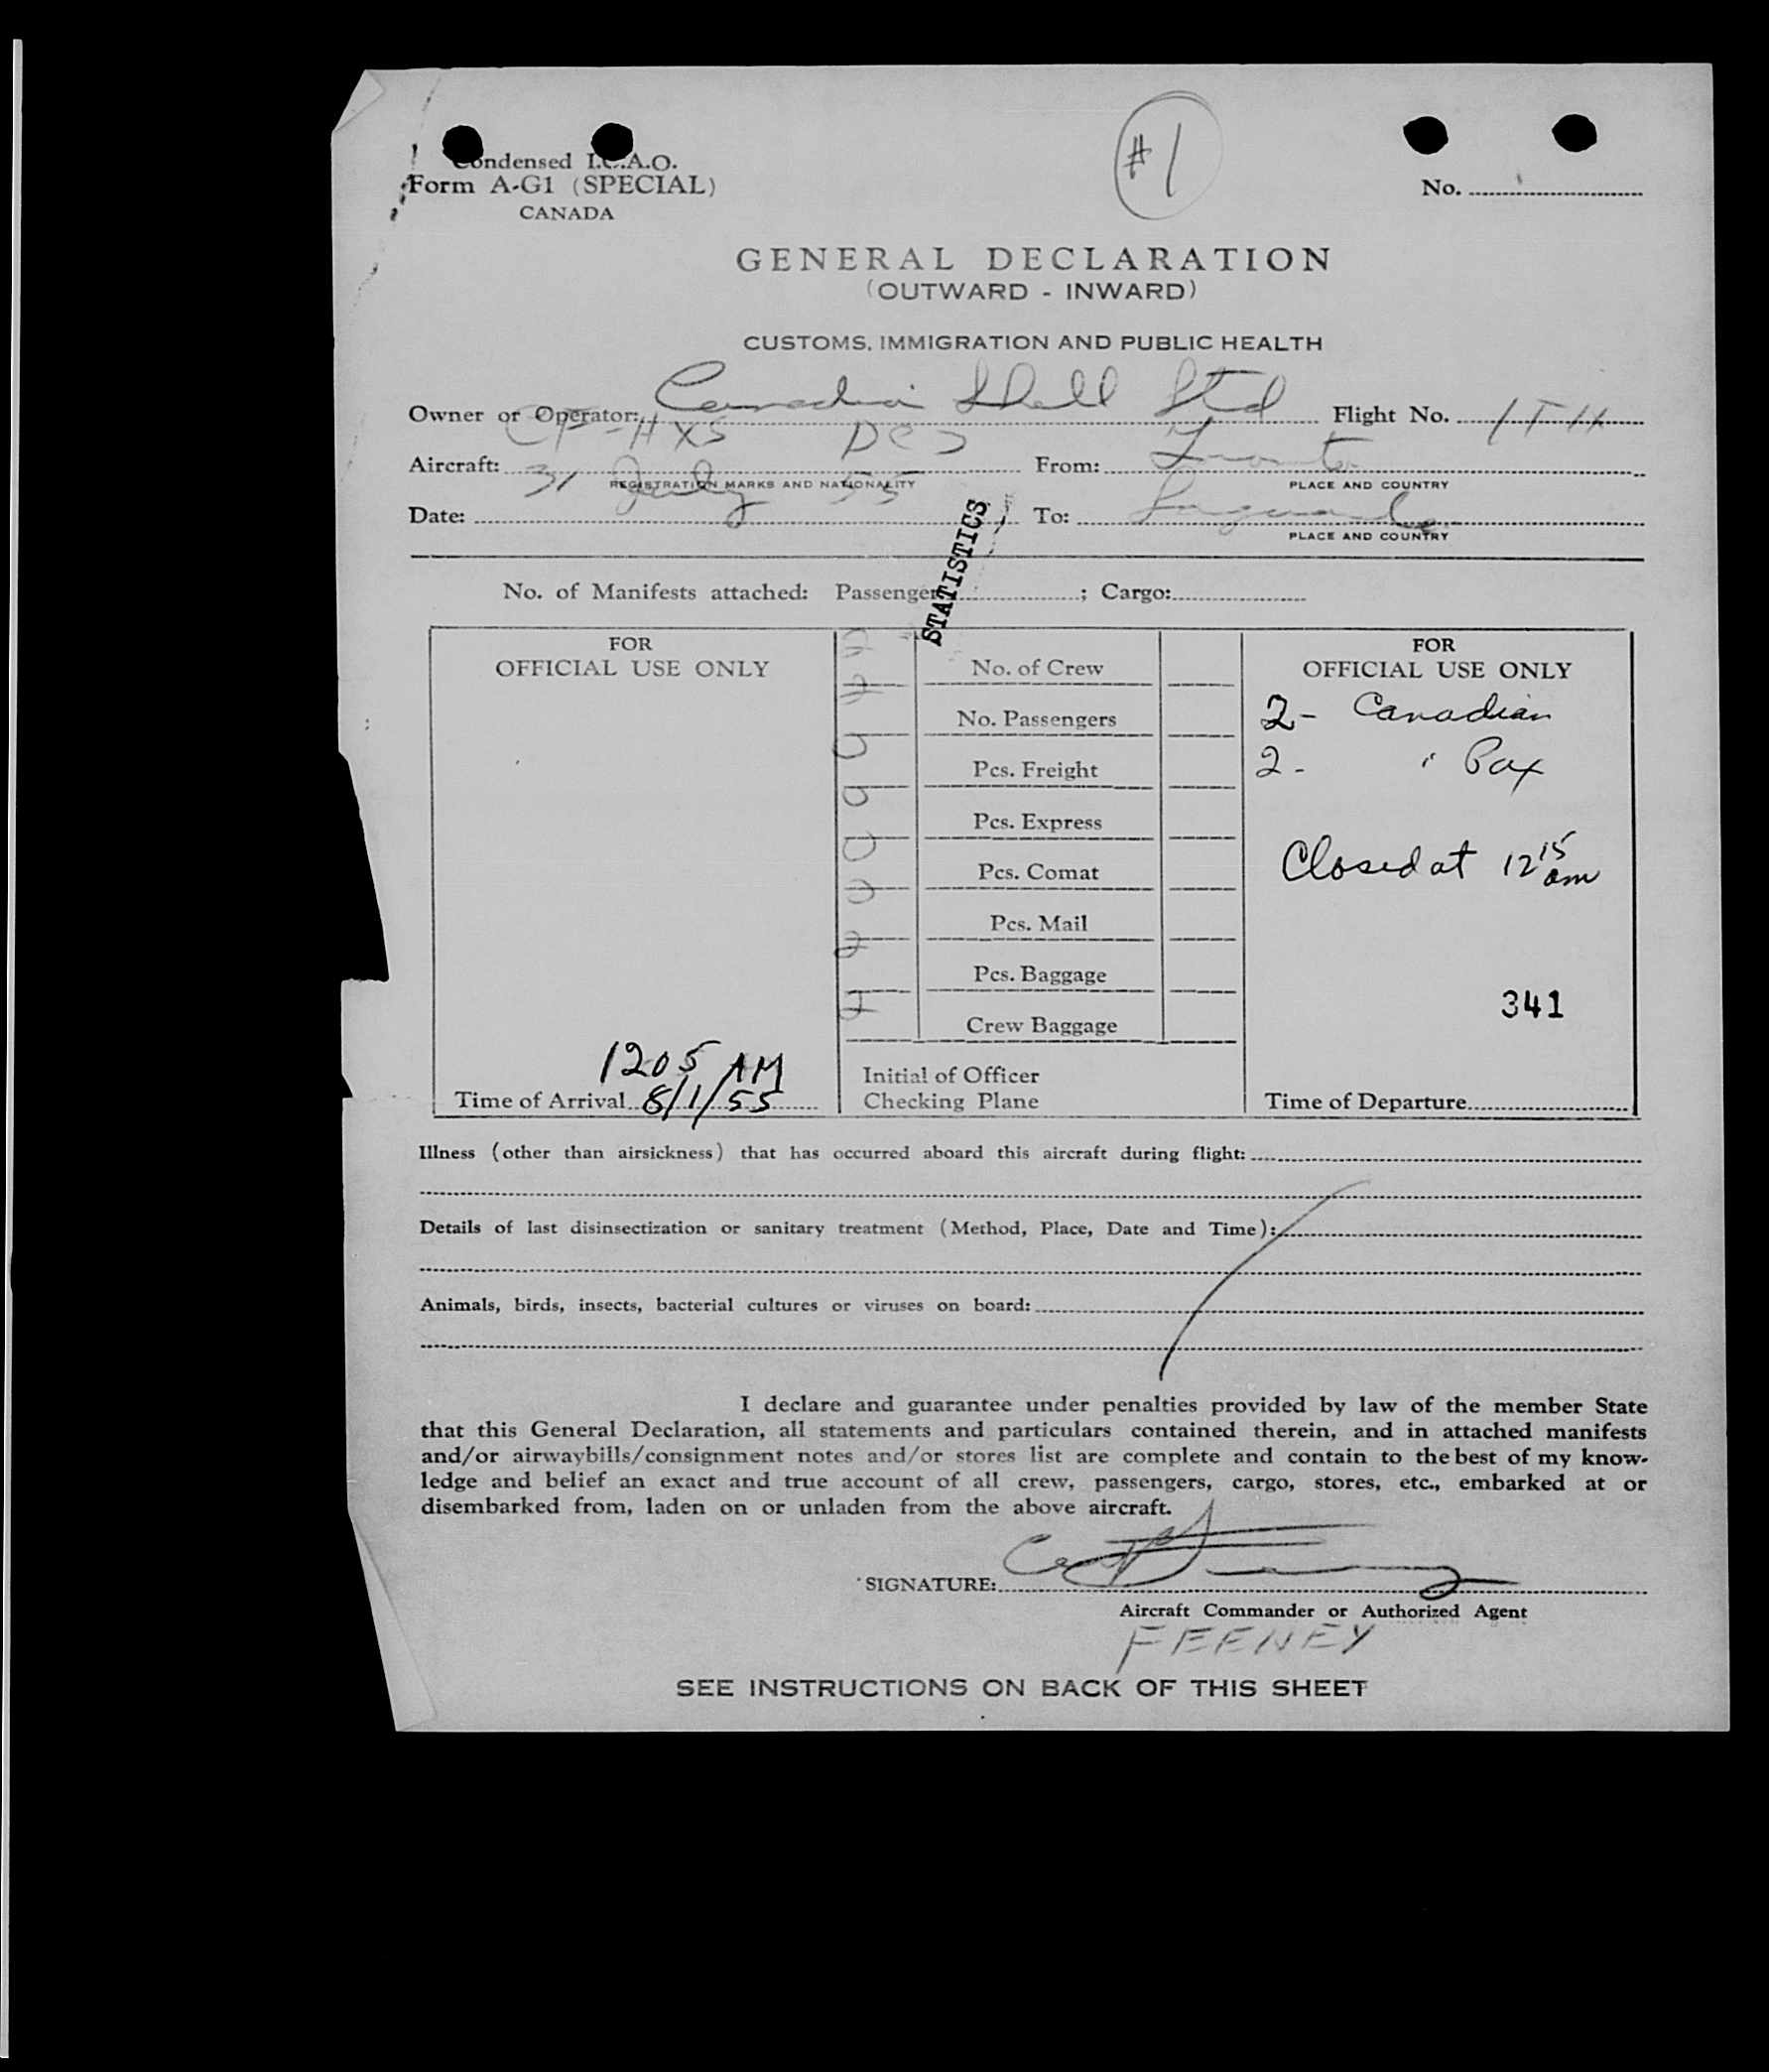 #1
Condensed I.C.A.O.
Form A-G1 (SPECIAL)
CANADA
No.
GENERAL DECLARATION
(OUTWARD - INWARD)
CUSTOMS, IMMIGRATION AND PUBLIC HEALTH
Owner or Operator: Canadian Shell Ltd Flight No.
Aircraft: CF-HXS DC3 From: Toronto
REGISTRATION MARKS AND NATIONALITY PLACE AND COUNTRY
Date: 31 July 55 To:
PLACE AND COUNTRY
STATISTICS
No. of Manifests attached: Passenger ; Cargo:
FOR
OFFICIAL USE ONLY
No. of Crew
No. Passengers
0 Pcs. Freight
0 Pcs. Express
0 Pcs. Comat
0 Pcs. Mail
2 Pcs. Baggage
Crew Baggage
Initial of Officer
Checking Plane
1205 AM
Time of Arrival 8/1/55
FOR
OFFICIAL USE ONLY
2- Canadian
2- " Pax
Closed at 12 15 am
341
Time of Departure
Illness (other than airsickness) that has occurred aboard this aircraft during flight:
Details of last disinsectization or sanitary treatment (Method, Place, Date and Time):
Animals, birds, insects, bacterial cultures or viruses on board:
I declare and guarantee under penalties provided by law of the member State
that this General Declaration, all statements and particulars contained therein, and in attached manifests
and/or airwaybills/consignment notes and/or stores list are complete and contain to the best of my know-
ledge and belief an exact and true account of all crew, passengers, cargo, stores, etc., embarked at or
disembarked from, laden on or unladen from the above aircraft.
SIGNATURE:
Aircraft Commander or Authorized Agent
FEENEY
SEE INSTRUCTIONS ON BACK OF THIS SHEET